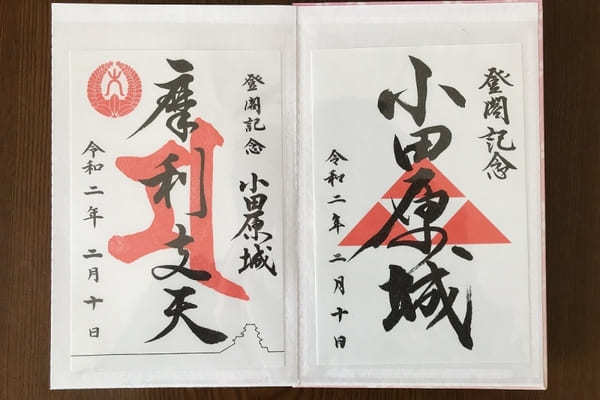 登閣記念
小田原城
令和二年 二月十日
登閣記念
小田原城
摩利支天
令和二年 二月十日